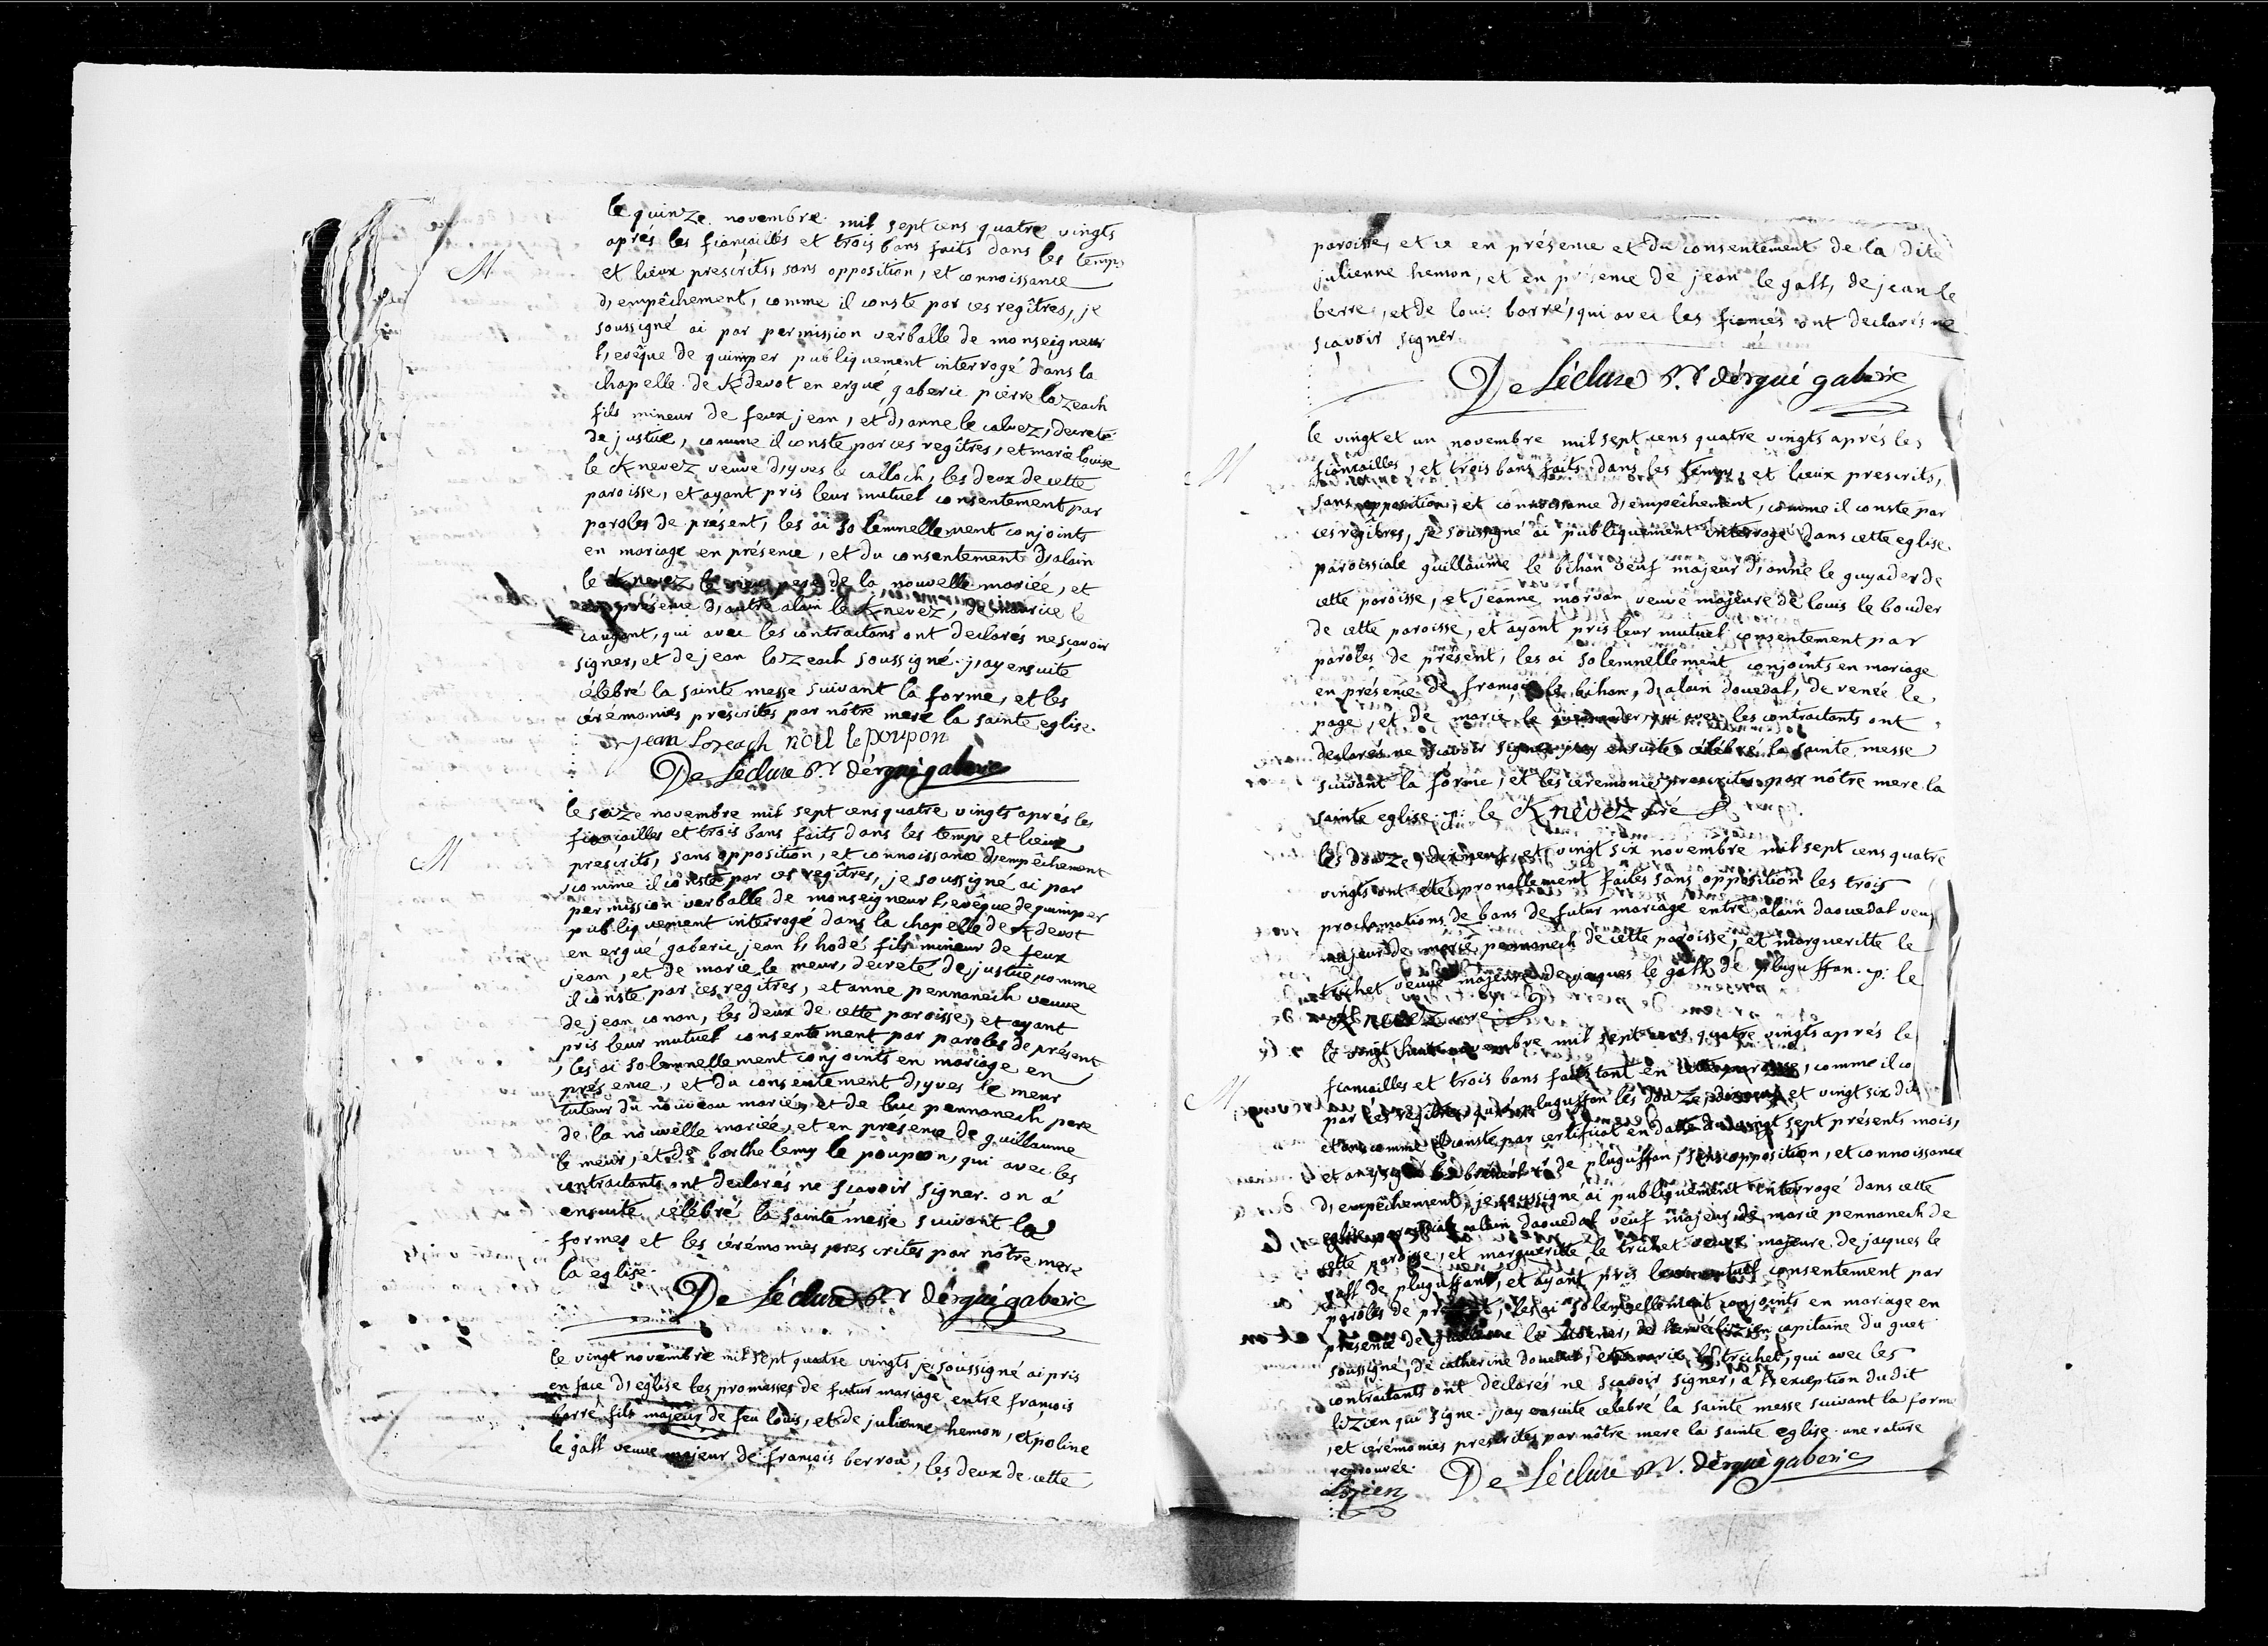 le quinze novembre mil sept cens quatre vingts
aprés les fiançailles et trois bans faits dans les temps
M
et lieux prescrits, sans opposition, et connoissance
d,empêchement, comme il conste par ces regîtres, je
soussigné ai par permission verballe de monseigneur
l,evêque de quimper publiquement interrogé dans la
chapelle de Kdevot en ergué gaberic pierre lozeach
fils mineur de feux jean, et d,anne le calvez, decreté
de justice, comme il conste par ces regîtres, et marie louise
le Knevez veuve d,yves le calloch, les deux de cette
paroisse, et ayant pris leur mutuel consentement par
paroles de présent, les ai solemnellement conjoints
en mariage en présence, et du consentement d,alain
le Knevez le vieux pere de la nouvelle mariée, et
en présence d,autre alain le Knevez, de maurice le
caugant, qui avec les contractans ont declarés ne sçavoir
signer, et de jean lozeach soussigné. j,ay ensuite
célébré la sainte messe suivant la forme, et les
cérémonies prescrites par nôtre mere la sainte eglise.
jean Lozeach noel le poupon
De Lécluse Rr. d'érgué gaberic
le seize novembre mil sept cens quatre vingts aprés les
fiançailles et trois bans faits dans les temps et lieux
M
prescrits, sans opposition, et connoissance d,empêchement
, comme il conste par ces regîtres, je soussigné ai par
permission verballe de monseigneur l,evêque de quimper
publiquement interrogé dans la chapelle de Kdevot
en ergué gaberic jean l,hodé fils mineur de feux
jean, et de marie le meur, decreté de justice, comme
il conste par ces regîtres, et anne pennanech veuve
de jean conan, les deux de cette paroisse, et ayant
pris leur mutuel consentement par paroles de présent
, les ai solemnellement conjoints en mariage en
présence, et du consentement d,yves le meur
tuteur du nouveau marié, et de luc pennanech pere
de la nouvelle mariée, et en présence de guillaume
le meur, et de barthelemy le poupon, qui avec les
contractants ont declarés ne sçavoir signer. on a
ensuite célébré la sainte messe suivant la
forme, et les cérémonies prescrites par nôtre mere
la eglise.
De Lécluse Rr. d'érgué gaberic
le vingt novembre mil sept quatre vingts je soussigné ai pris
en face d,eglise les promesses de futur mariage entre françois
barré fils majeur de feu louis, et de julienne hemon, et poline
le gall veuve majeur de françois berrou, les deux de cette
paroisse, et ce en présence et du consentement de la dite
julienne hemon, et en présence de jean le gall, de jean le
berre, et de louis barré, qui avec les fiancés ont declarés ne
sçavoir signer.
De Lécluse Rr. d'érgué gaberic
le vingt et un novembre mil sept cens quatre vingts aprés les
M
fiançailles, et trois bans faits dans les temps, et lieux prescrits,
sans opposition, et connoissance d,empêchement, comme il conste par
ces regîtres, je soussigné ai publiquement interrogé dans cette eglise
paroissiale guillaume le bihan veuf majeur d,anne le guyader de
cette paroisse, et jeanne morvan veuve majeure de louis le bouder
de cette paroisse, et ayant pris leur mutuel consentement par
paroles de présent, les ai solemnellement conjoints en mariage
en présence de françois le bihan, d,alain douedal, de renée le
page, et de marie le qui avec les contractants ont
declarés ne sçavoir signer. j,ay ensuite célébré la sainte messe
suivant la forme, et les ceremonies prescrites par nôtre mere la
sainte eglise. p: le Knevez curé
les douze, dixneuf, et vingt six novembre mil sept cens quatre
vingts ont eté pronallement faites sans opposition les trois
proclamations de bans de futur mariage entre alain daouedal veuf
majeur de marie pennanech de cette paroisse, et margueritte le
trichet veuve majeure de jaques le gall de pluguffan. p: le
Knevez curé
le vingt huit novembre mil sept cens quatre vingts aprés le
M
fiançailles et trois bans faits tant en cette paroisse, comme il co
par ces regîtres, qu'à pluguffan les douze, dixneuf, et vingt six dit
et an, comme il conste par certificat en datte du vingt sept présents mois,
et an, signé de pluguffan, sans opposition, et connoissance
d,empêchement, je soussigné ai publiquement interrogé dans cette
eglise paroissiale alain daouedal veuf majeur de marie pennanech de
cette paroisse, et margueritte le trichet veuve majeure de jaques le
gall de pluguffan, et ayant pris leur mutuel consentement par
paroles de présent, les ai solemnellement conjoints en mariage en
présence de guillaume le , de hervé lizien capitaine du guet
soussigné, de catherine douedal, et marie le trichet, qui avec les
contractants ont declarés ne sçavoir signer, a l,exception du dit
lizien qui signe. j,ay ensuite celebré la sainte messe suivant la form
, et cérémonies prescrites par nôtre mere la sainte eglise. une rature
reprouvée.
lizien De Lécluse Rr. d'érgué gaberic